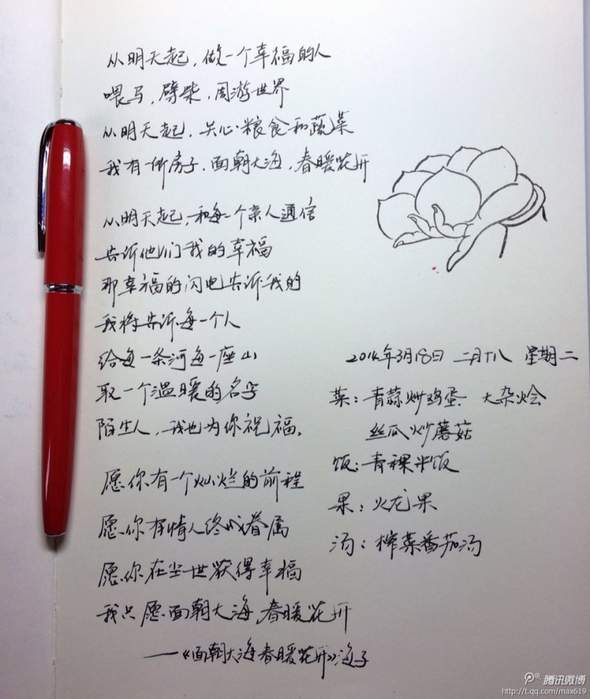 从明天起，做一个幸福的人
喂马，劈柴，周游世界
从明天起，关心粮食和蔬菜
我有一所房子，面朝大海，春暖花开
从明天起，和每一个亲人通信
告诉他们我的幸福
那幸福的闪电告诉我的
我将告诉每一个人
给每一条河每一座山
取一个温暖的名字
陌生人，我也为你祝福，
愿你有一个灿烂的前程
愿你有情人终成眷属
愿你在尘世获得幸福
我只愿面朝大海，春暖花开
——《面朝大海春暖花开》海子
2014年3月18日 二月十八 星期二
菜：青蒜炒鸡蛋 大杂烩
丝瓜炒蘑菇
饭：青稞米饭
果：火龙果
汤：榨菜番茄汤
腾讯微博
http://t.qq.com/max619